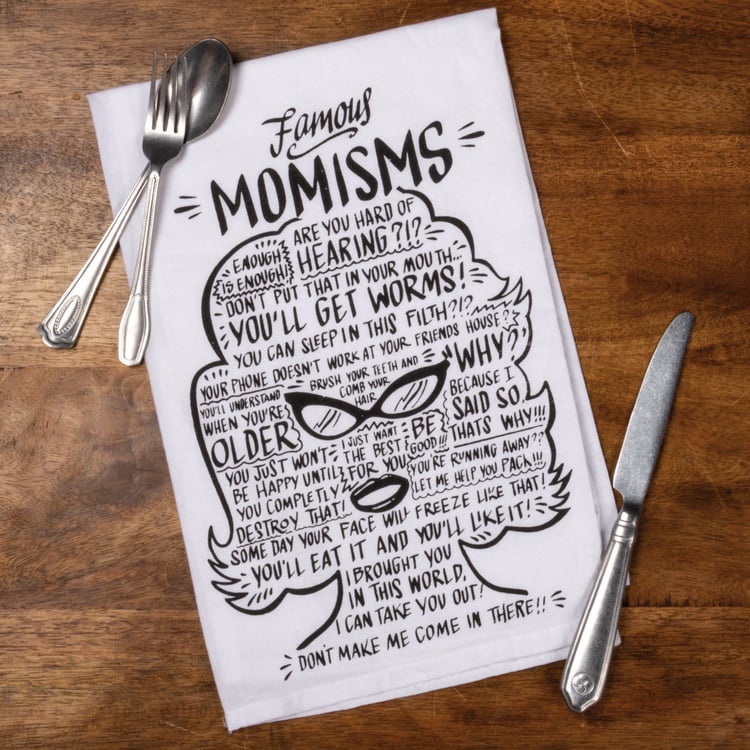 Famous
MOMISMS
ENOUGH
IS ENOUGH!
ARE YOU HARD OF
HEARING?!?
DON'T PUT THAT IN YOUR MOUTH...
YOU'LL GET WORMS!
YOU CAN SLEEP IN THIS FILTH?!?
YOUR PHONE DOESN'T WORK AT YOUR FRIENDS HOUSE?
BRUSH YOUR TEETH AND
COMB YOUR
HAIR
"WHY?"
BECAUSE I
SAID SO,
THATS WHY!!!
YOU'LL UNDERSTAND
WHEN YOU'RE
OLDER
I JUST WANT
THE BEST
FOR YOU
BE
GOOD!!!
YOU JUST WON'T
BE HAPPY UNTIL
YOU COMPLETLY
DESTROY THAT!
YOU'RE RUNNING AWAY??
LET ME HELP YOU PACK!!!
SOME DAY YOUR FACE WILL FREEZE LIKE THAT!
YOU'LL EAT IT AND YOU'LL LIKE IT!
I BROUGHT YOU
IN THIS WORLD,
I CAN TAKE YOU OUT!
DON'T MAKE ME COME IN THERE!!